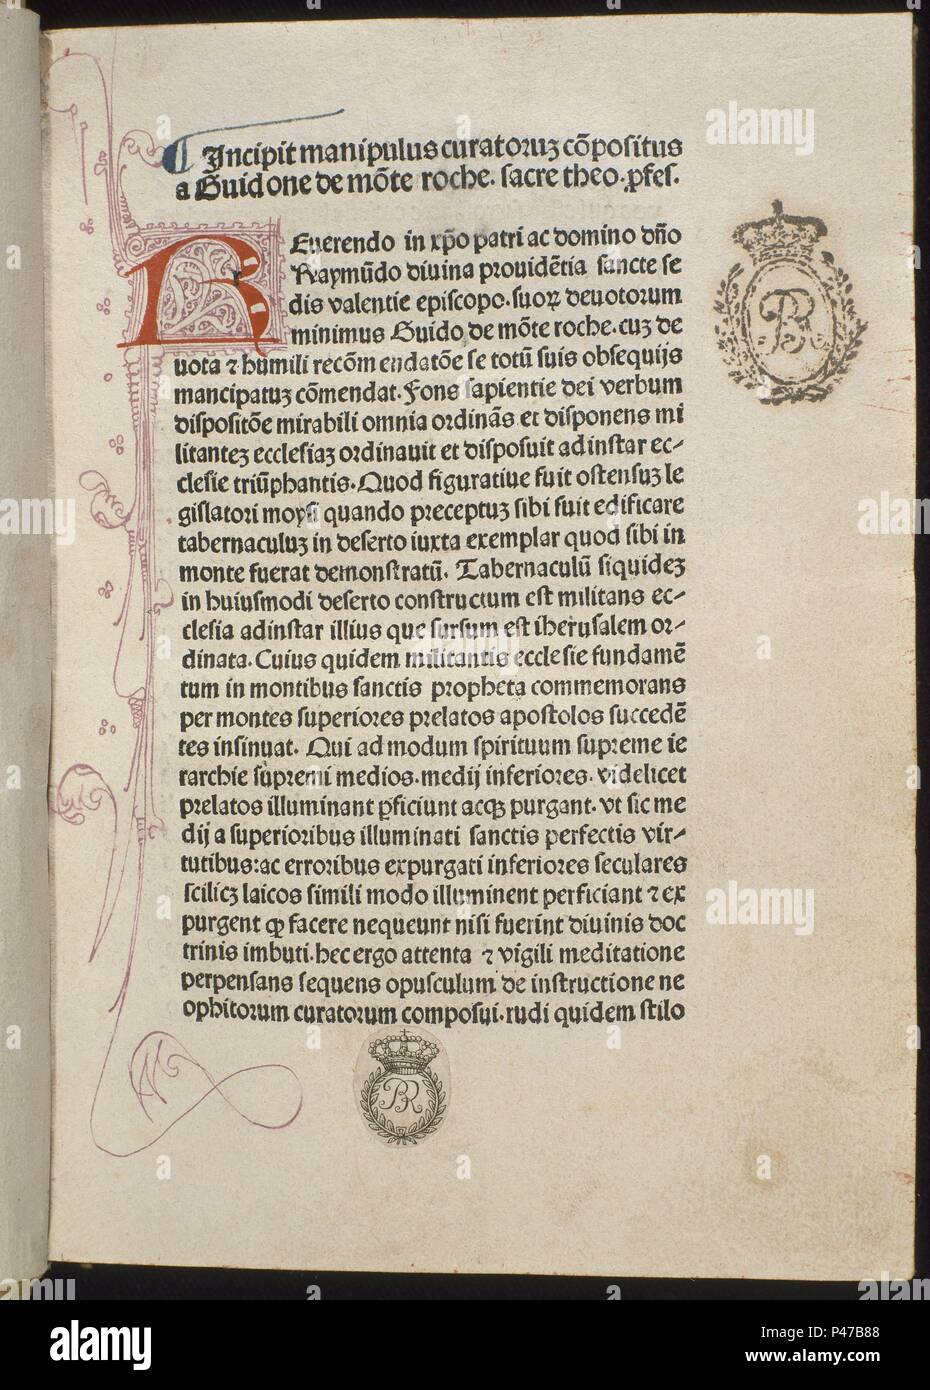 Incipit manipulus curatoruʒ cōpositus
a Guidone de mōte roche. sacre theo. ꝓfes.
REuerendo in xp̄o patri ac domino dn̄o
Raymūdo diuina prouidētia sancte se
dis valentie episcopo. suoꝝ deuotorum
minimus Guido de mōte roche. cuʒ de
uota ⁊ humili recōmendatōe se totū suis obsequijs
mancipatuʒ cōmendat. Fons sapientie dei verbum
dispositōe mirabili omnia ordinās et disponens mi
litanteʒ ecclesiaʒ ordinauit et disposuit ad instar ec-
clesie triūphantis. Quod figuratiue fuit ostensuʒ le
gislatori moysi quando preceptuʒ sibi fuit edificare
tabernaculuʒ in deserto iuxta exemplar quod sibi in
monte fuerat demonstratū. Tabernaculū siquideʒ
in huiusmodi deserto constructum est militans ec-
clesia ad instar illius que sursum est iherusalem or-
dinata. Cuius quidem militantis ecclesie fundamē
tum in montibus sanctis propheta commemorans
per montes superiores prelatos apostolos succedē
tes insinuat. Qui ad modum spirituum supreme ie
rarchie supremi medios. medij inferiores. videlicet
prelatos illuminant ꝑficiunt acqꝫ purgant. vt sic me
dij a superioribus illuminati sanctis perfectis vir-
tutibus: ac erroribus expurgati inferiores seculares
scilicʒ laicos simili modo illuminent perficiant ⁊ ex
purgent qꝫ facere nequeunt nisi fuerint diuinis doc
trinis imbuti. hec ergo attenta ⁊ vigili meditatione
perpensans sequens opusculum de instructione ne
ophitorum curatorum composui. rudi quidem stilo
BR
BR
alamy
alamy
alamy
alamy
alamy
alamy
Image ID: P47B88
www.alamy.com